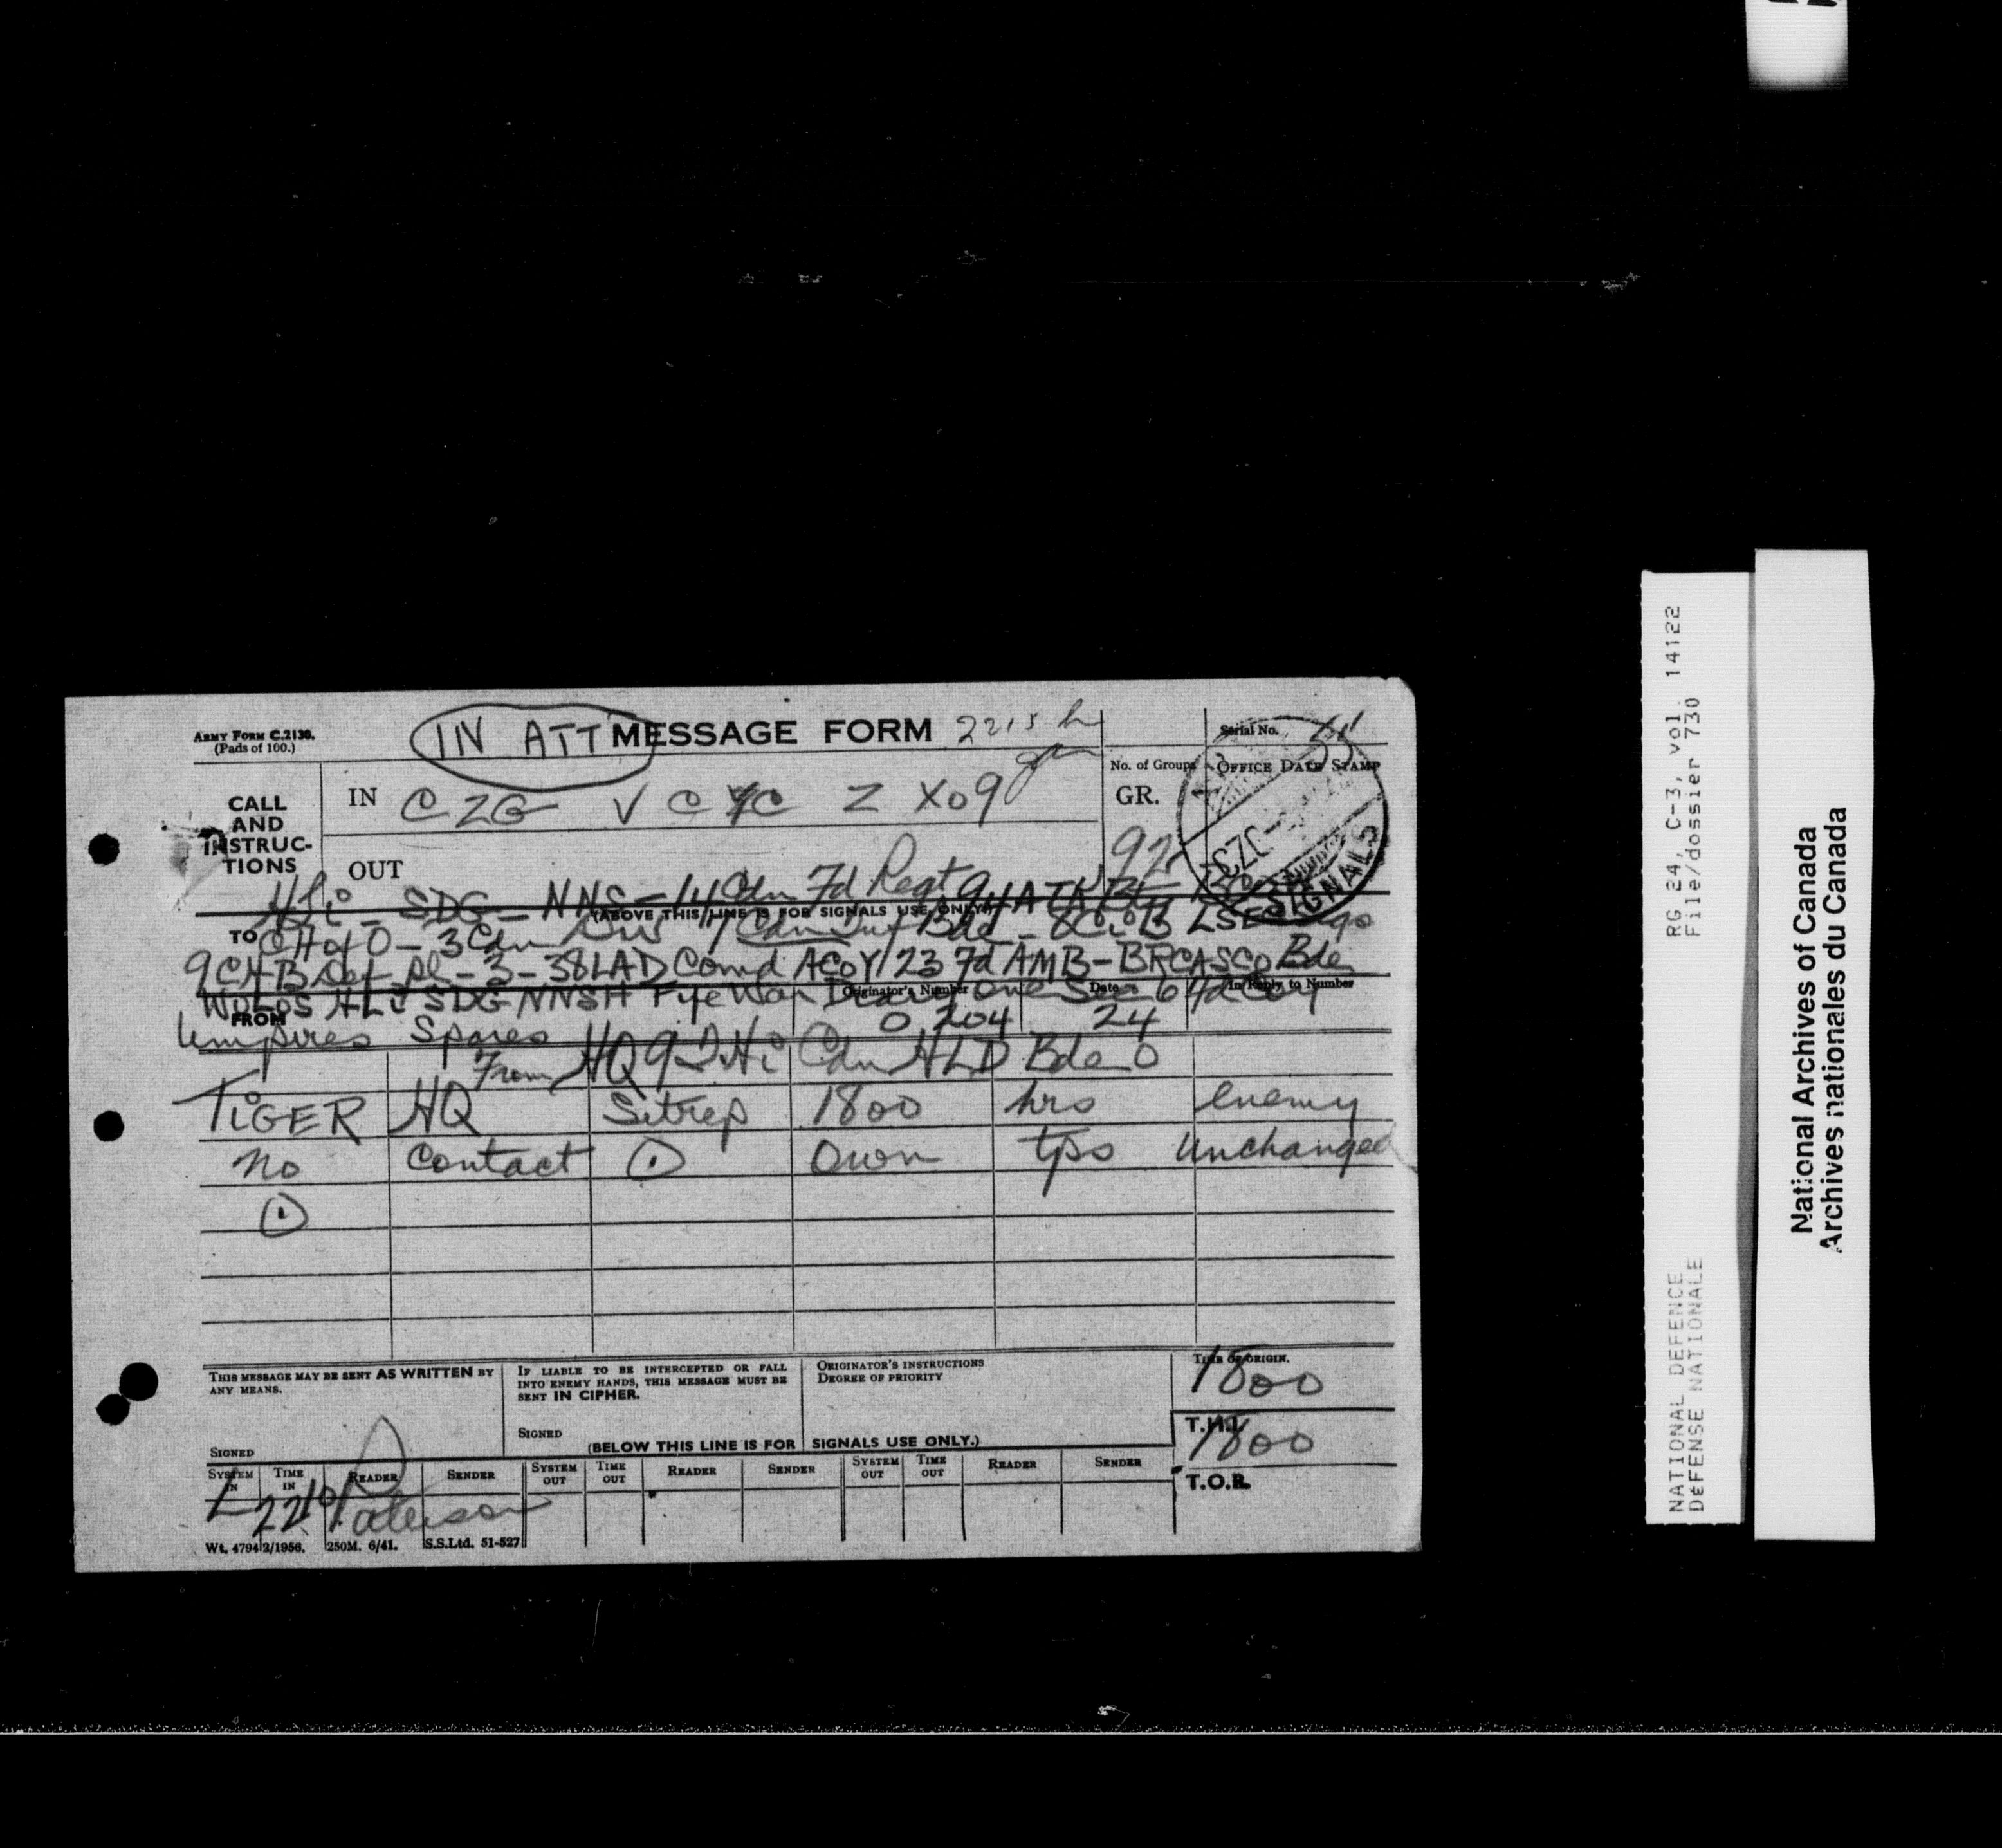 ARMY FORM C.2130.
(Pads of 100.)
IN ATT MESSAGE FORM 2215 h
Serial No.
No. of Groups
OFFICE DATE STAMP
CALL AND INSTRUC-TIONS
IN CZG V CYC Z X09
GR. 92
OUT
CZC
SIGNALS
HLi - SDG - NNS - 14 Cdn Fd Regt 94 ATK Bt
(ABOVE THIS LINE IS FOR SIGNALS USE ONLY)
TO CH of O - 3 Cdn Div Cdn Inf Bde
9 CHB Def Pl - 3 - 38 LAD Comd A COY 23 Fd AMB - BRCASCO Bde
HLi SDG NNSH Fye War Diary One Sec 6 Fd Coy
Originator's Number
Date
In Reply to Number
FROM
Umpires Spares
0 204
24
From HQ 9 Cdn HLD Bde
TiGER HQ Sitrep 1800 hrs enemy
no contact (.) Own tps unchanged
(.)
THIS MESSAGE MAY BE SENT AS WRITTEN BY ANY MEANS.
IF LIABLE TO BE INTERCEPTED OR FALL INTO ENEMY HANDS, THIS MESSAGE MUST BE SENT IN CIPHER.
ORIGINATOR'S INSTRUCTIONS
DEGREE OF PRIORITY
TIME OF ORIGIN.
1800
T.H.I.
1800
T.O.R.
SIGNED
SIGNED
(BELOW THIS LINE IS FOR SIGNALS USE ONLY.)
SYSTEM IN
TIME IN
READER
SENDER
SYSTEM OUT
TIME OUT
READER
SENDER
SYSTEM OUT
TIME OUT
READER
SENDER
L 2210 Paterson
Wt. 47942/1956. 250M. 6/41. S.S.Ltd. 51-527
RG 24, C-3, vol. 14122
File/dossier 730
NATIONAL DEFENCE
DÉFENSE NATIONALE
National Archives of Canada
Archives nationales du Canada